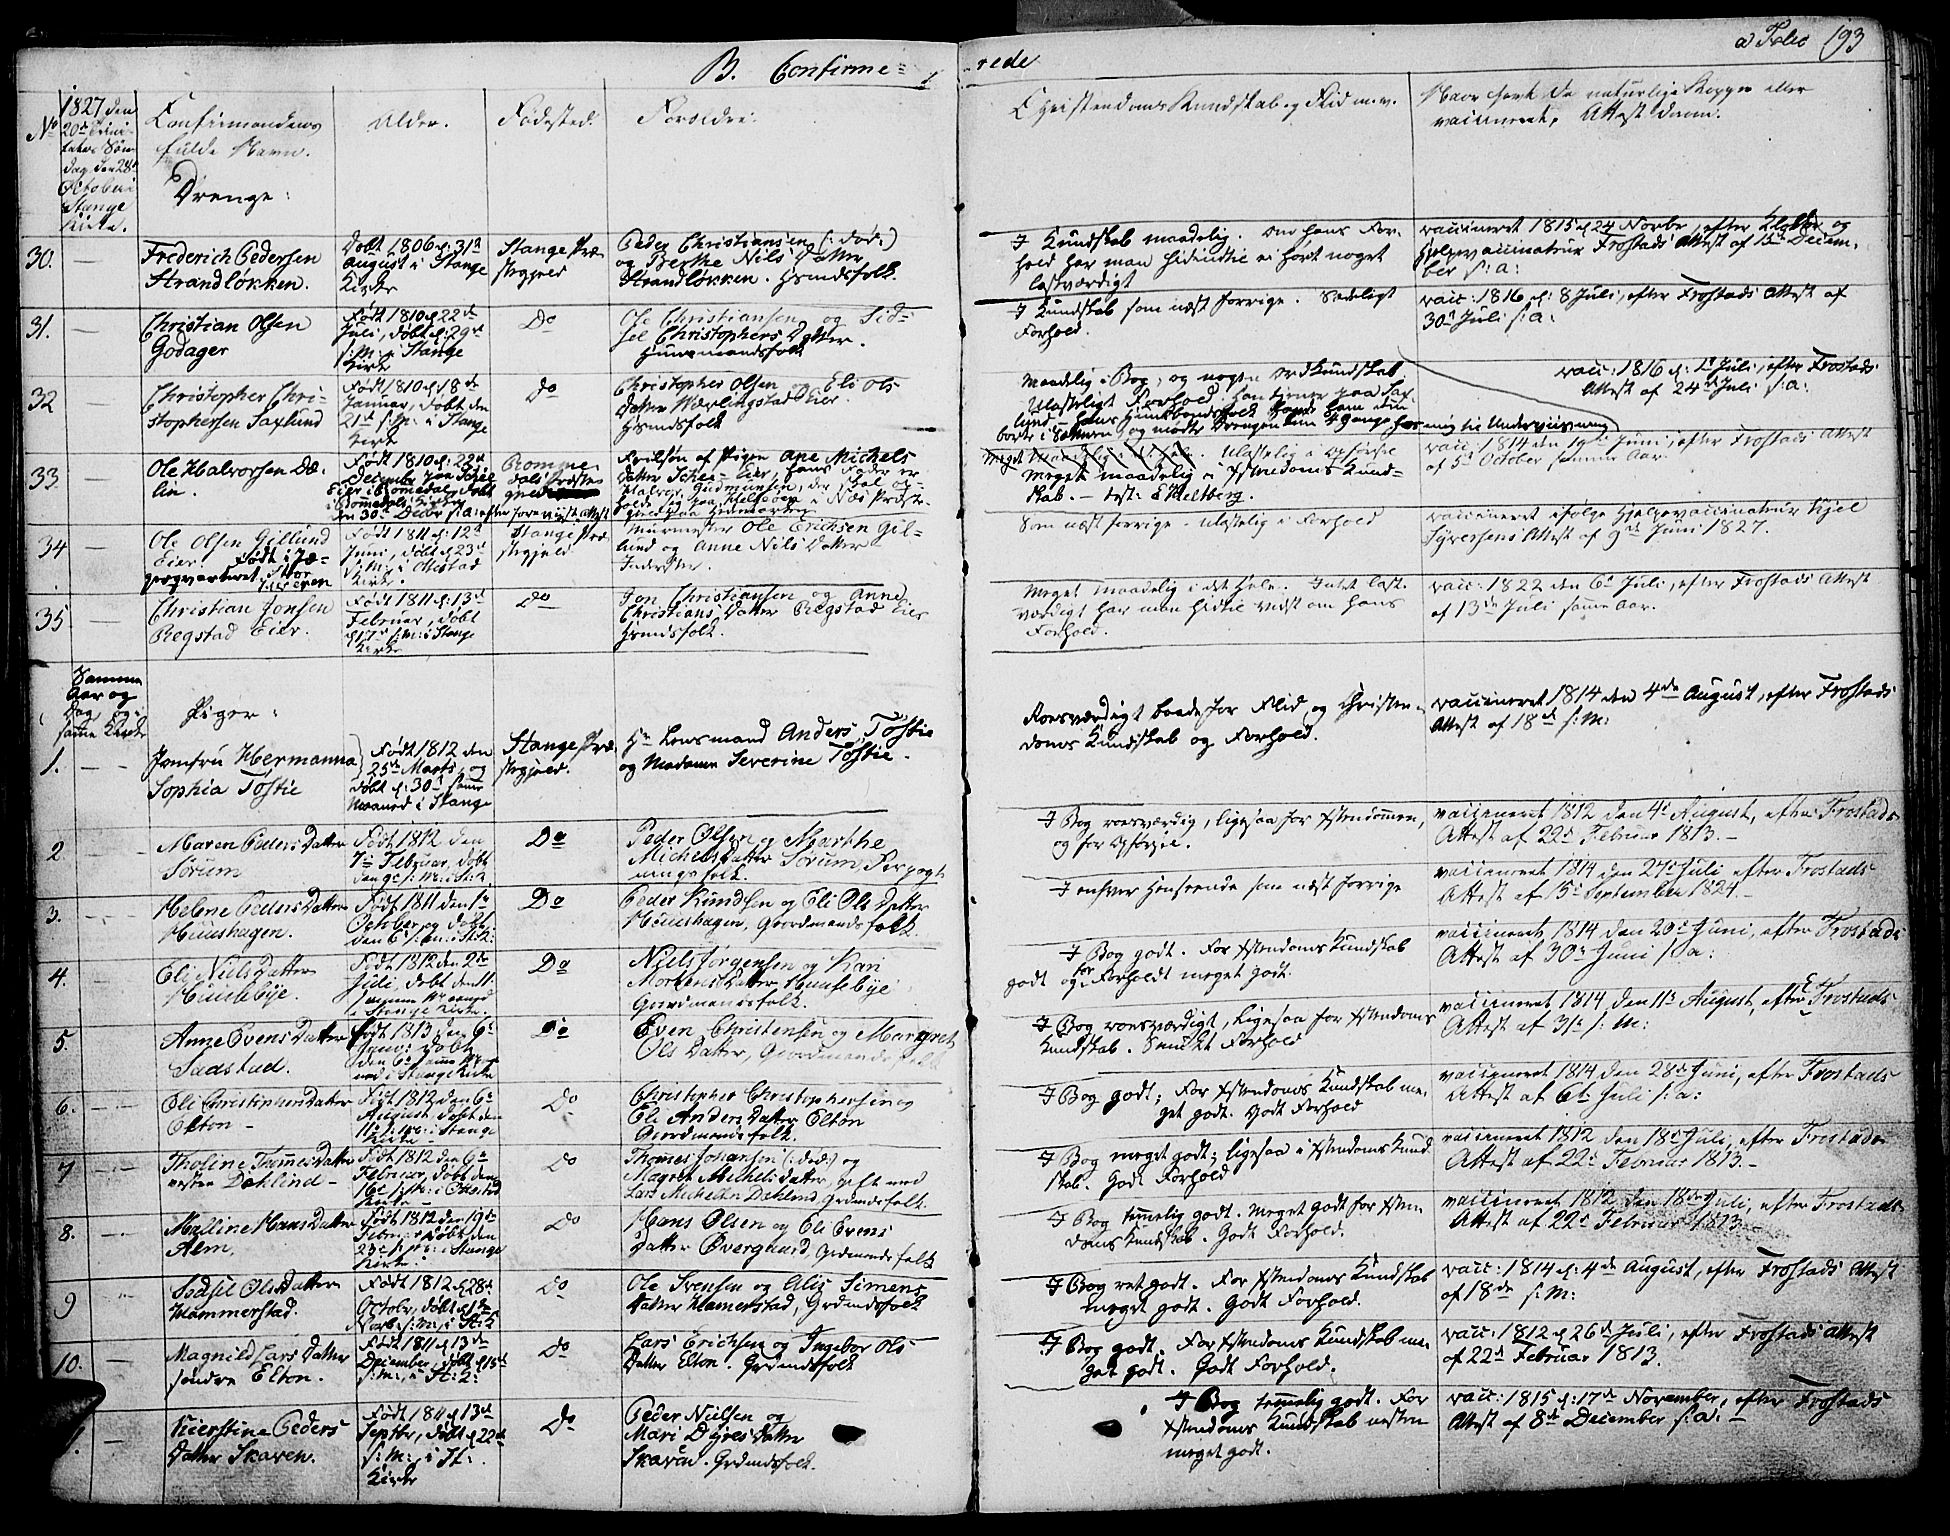 B. Confirme=
rede
a Folio 193
No
1827 den
20de Trini
tatis Søn
dag den 28de
October i
Stange
Kirke.
Confirmandens
fulde Navn.
Alder.
Fødested.
Forældre.
Christendoms Kundskab og Flid m.v.
Naar havt de naturlige Kopper eller
vaccineret, Attest derom.
Drenge:
30.
Frederich Pedersen
Strandløkken.
Døbt 1806 d: 31te
August i Stange
Kirke
Stange Præ
stegjeld
Peder Christiansen (: død:)
og Berthe Nils Datter
Strandløkken. Hsmdsfolk
I Kundskab maadelig. Om hans For-
hold har man hidindtil ei hørt noget
lastværdigt
vaccineret 1815 d 24 Novbr, efter Klokker og
Hjelpevaccinateur Frostads Attest af 15de Decem-
ber s: a:
31.
Christian Olsen
Godager
Født 1810 d 22de
Juli, døbt d: 29de
s: M: i Stange
Kirke
Do
Ole Christiansen og Sid-
sel Christophers Datter.
Huusmandsfolk
I Kundskab som næst forrige. Sædeligt
Forhold.
vacc: 1816 d: 8 Juli, efter Frostads Attest af
30te Juli s: a:
32
Christopher Chri-
stophersen Saxlund
Født 1810 d: 18de
Januar, døbt den
21de s: M: i Stange
Kirke
Do
Christopher Olsen og Eli Ols
Datter Wærlingstad Eier.
Hsmdsfolk
Maadelig i Bog, og nogen Kundskab
Ulasteligt Forhold. Han tjener paa Sax
lund
vacc: 1816 d: 1te Juli, efter Frostads
Attest af 24de Juli s: a:
33
Ole Halvorsen Dæ-
lin.
Født 1810 d: 22de
December
Romme
dals Præste
gjeld
Ane Michels
Datter
Halvor Gudmundsen
Meget maadelig i Xstendoms Kund-
skab.
vacc: 1814 den 19de Juni, efter Frostads Attest
af 5te October samme Aar.
34
Ole Olsen Gillund
Eier. Født i Jæ-
gergvarteret
Født 1811 d: 12te
Juni, døbt d 23de
s: M: i Ottestad
Kirke.
Stange Præ
stegjeld
Muurmester Ole Erichsen Gil-
lund og Anne Nils Datter
Inderster.
Som næst forrige. Ulastelig i Forhold
vaccineret ifølge Hjelpevaccinateur Kjel
Syversens Attest af 9de Juni 1827.
35
Christian Jonsen
Regstad Eier.
Født 1811 d: 13de
Februar, døbt
d 17de s: M: i Stange
Kirke
Do
Jon Christiansen og Anne
Christians Datter Regstad Eier
Hsmdsfolk.
Meget maadelig i det hele. Intet last-
værdigt har man hidtil vidst om hans
Forhold.
vacc: 1822 den 6te Juli, efter Frostads Attest
af 13de Juli samme Aar.
Samme
Aar og
Dag og i
samme Kirke
Piger:
1.
Jomfru Hermanna
Sophia Tostie
Født 1812 den
25de Marts, og
døbt d: 30te samme
Maaned i Stange
Stange Præ
stegjeld.
Hr Lensmand Anders Tostie
og Madame Severine Tostie.
Roesværdigt baade for Flid og Christen-
doms Kundskab og Forhold.
vaccineret 1814 den 4de August, efter Frostads
Attest af 18de s: M:
2
Maren Peders Datter
Sørum
Født 1812 den
7de Februar, døbt
den 9de s: M: i St: K
Do
Peder Olsen og Marthe
Michels Datter Sørum, Forpagt-
ningsfolk.
I Bog roesværdig, ligesaa for Xstendommen,
og for Opførsel.
vaccineret 1812 den 4de August, efter Frostads
Attest af 22de Februar 1813.-
3.
Helene Peders Datter
Huushagen.
Født 1811 den 1te
October og døbt
den 6te s: m: i St: K:
Do
Peder Knudsen og Eli Ols Datter
Huushagen, Gaardmandsfolk
I enhver Henseende som næst forrige
vaccineret 1814 den 27de Juli, efter Frostads
Attest af 15de September 1824.-
4.
Eli Niels Datter
Huusebye.
Født 1812 den 2de
Juli, døbt den 11te
samme Maaned
i Stange Kirke.
Do
Niels Jørgensen og Kari
Mortens Datter Huusebye
Gaardmandsfolk.
I Bog godt. For Xstendoms Kundskab
godt og for Forholdt meget godt.
vaccineret 1814 den 20de Juni, efter Frostads
Attest af 30te Juni s: a:
5.
Anne Evens Datter
Saastad.
Født 1813 den 6te
Do
Even Christensen og Margret
Ols Datter, Gaardmandsfolk
I Bog roesværdigt, ligesaa for Xstendoms
Kundskab. Smukt Forhold
vaccineret 1814, den 11te August, efter Frostads
Attest af 31te s: M:
6.
Oli Christophers Datter
Elton -
Født 1812 den 6te
August, døbt den
11te s: m: i Stange
Kirke -
Do
Christopher Christophersen og
Oli Anders Datter Elton
Gaardmandsfolk.
I Bog godt; For Xstendoms Kundskab me-
get godt. Godt Forhold
vaccineret 1814 den 28de Juni, efter Frostads
Attest af 6te Juli s: a:
7
Thorine Thomes Datter
vestre Dahlind -
Født 1812 den 6te
Februar, døbt den
16de s: M: i Ottestad
Kirke
Do
Thomes Johansen (: død:) og
Magret Michels Datter, gift med
Lars Michelsen Dahlind, Grdmdsfolk.
I Bog meget godt; ligesaa i Xstendoms Kund
skab. Godt Forhold
vaccineret 1812 den 18de Juli, efter Frostads
Attest af 22de Februar 1813.-
8.
Malline Hans Datter
Alm.
Født 1812 den 19de
Februar døbt den
23de s: m: i Stange
Kirke.
Do
Hans Olsen og Eli Evens
Datter Øvergaard, Grdmandsfolk
I Bog temmelig godt. Meget godt for Xsten-
doms Kundskab. Godt Forhold.
vaccineret 1812 den 18de Juli, efter Frostads
Attest af 22de Februar 1813.-
9
Sidsel Ols Datter
Hammerstad.
Født 1812 d: 28de
Octobr, døbt d 1te
Novbr: s: M: i St: K
Do
Ole Svensen og Alis Simens
Datter Hamerstad, Grdmdsfolk
I Bog ret godt. For Xstendoms Kundskab
meget godt. Godt Forhold.
vacc: 1814 d: 4de August, efter Frostads Attest
af 18de s: M:
10.
Magnild Lars Datter
søndre Elton.
Født 1811 d: 13de
December, døbt d 15de
s: M:, i St: K:
Do
Lars Erichsen og Ingebor Ols
Datter Elton. Grdmdsfolk
I Bog godt. For Xstendoms Kundskab me-
get godt. Godt Forhold.
vacc: 1812 d 26de Juli, efter Frostads Attest
af 22de Februar 1813.
Kierstine Peders
Datter Skaven.
Født 1811 d: 13de
Septbr, døbt d 22de
s: M:, i St:
Kirke
Do
Peder Nielsen og
Mari Dyres Datter
Skaven. Grdmdsfolk.
I Bog temmelig godt. For
Xstendoms Kundskab næsten
meget godt.
vacc: 1815 d: 17de November, efter Frostads
Attest af 8de December s: a: -